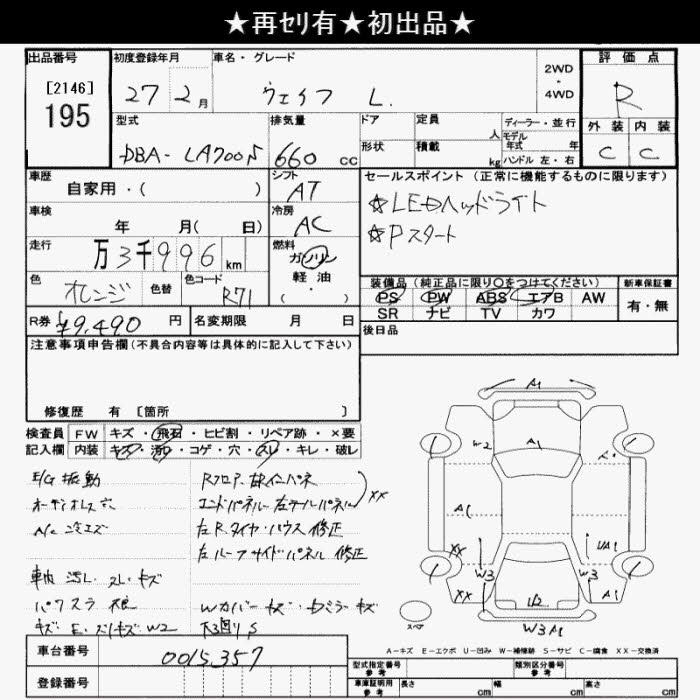 ★再セリ有★初出品★
出品番号 初度登録年月 車名・グレード 2WD・4WD 評価点
[2146] 195
27年 2月 ウェイク L. R
型式 排気量 ドア 定員 人 ディーラー・並行
モデル年式 年
外装 内装
DBA- LA700S 660 cc 形状 積載 kg ハンドル 左・右 C C
車歴 自家用・( ) シフト AT セールスポイント (正常に機能するものに限ります)
☆LEDヘッドライト
☆Pスタート
車検 年 月( 日) 冷房 AC
走行 万3千996 km 燃料 ガソリン 軽油・( )
色 オレンジ 色替 色コード R71
装備品 (純正品に限り○をつけてください) 新車保証書
PS PW ABS エアB AW 有・無
SR ナビ TV カワ
R券 ¥9,490 円 名変期限 月 日 後日品
注意事項申告欄(不具合内容等は具体的に記入して下さい)
修復歴 有 [箇所 ]
検査員 FW キズ・飛石・ヒビ割・リペア跡・×要
記入欄 内装 キズ・汚れ・コゲ・穴・スレ・キレ・破レ
E/G 振動
オーディオレス 穴
Rフロア
エンドパネル 左テールパネル XX
左R.タイヤハウス 修正
左ルーフサイドパネル 修正
キズ
下回りS
A1
W2 A1
A1
XX UA1
W3 W3
XX U2 A1
W3 A1
スペア
車台番号 0015357
登録番号
型式指定番号 参考 類別区分番号 参考
車庫証明用 参考 長さ cm 幅 cm 高さ cm
A-キズ E-エクボ U-凹み W-補修跡 S-サビ C-腐食 XX-交換済